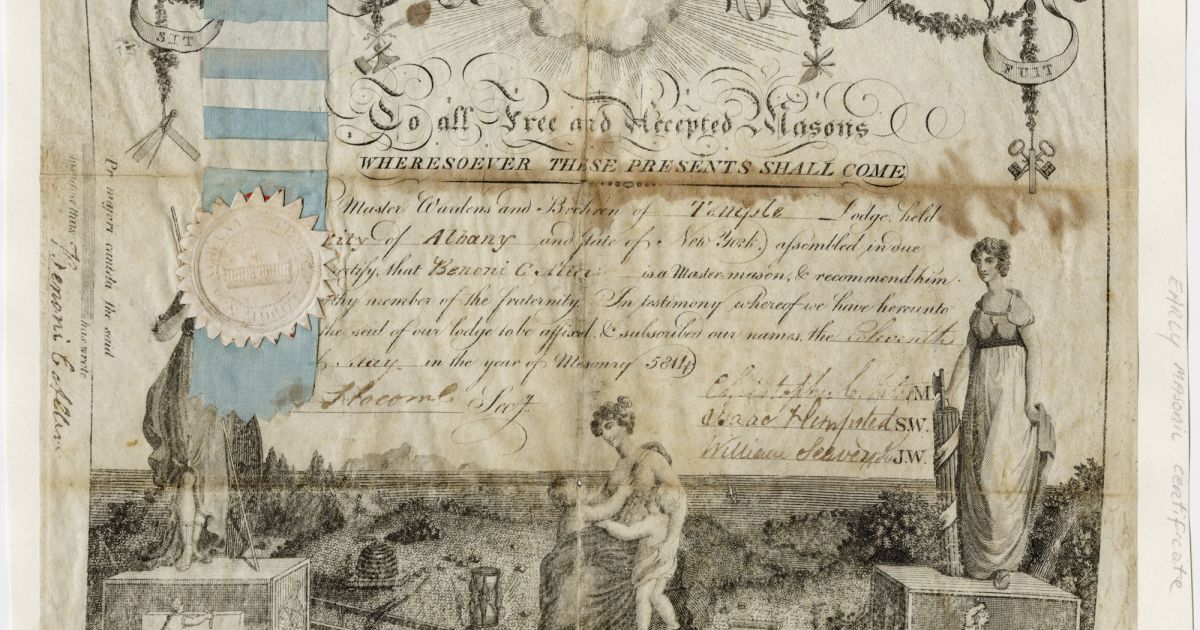 SIT
FUIT
To all Free and Accepted Masons
WHERESOEVER THESE PRESENTS SHALL COME
Master Wardens and Brethren of Temple Lodge, held
City of Albany and state of New York, assembled in due
certify, that Benoni C. is a Master mason, & recommend him
member of the fraternity. In testimony whereof we have hereunto
the seal of our lodge to be affixed, & subscribed our names, the Eleventh
May in the year of Masonry 5814
Slocomb Secy.
Christopher C. M.
Isaac Hempsted S.W.
William J.W.
Pr majori cautela the said
has wrote
Benoni C Allen
EARLY MASONIC CERTIFICATE